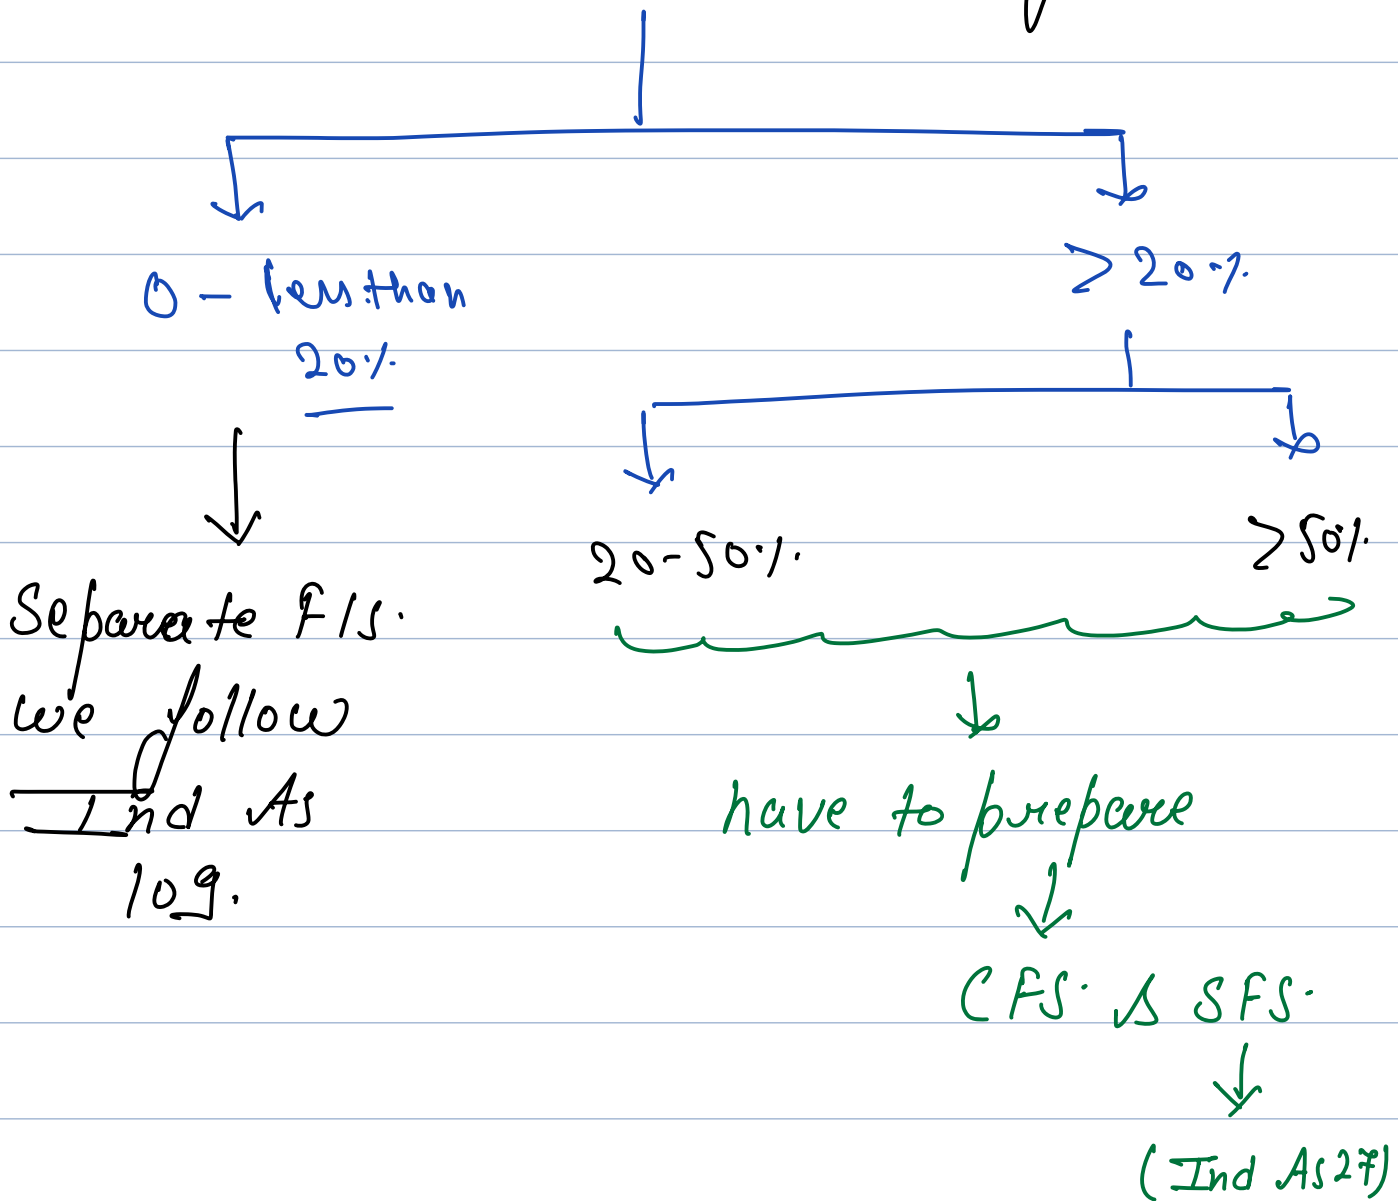 0 - less than
20%
> 20%
20-50%
> 50%
Separate F/s.
we follow
Ind As
109.
have to prepare
CFS. & SFS.
(Ind As 27)